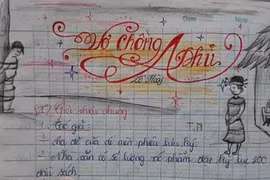 Vợ chồng A Phủ
Tô Hoài
I) Giới thiệu chung
1. Tác giả:
- cha đẻ của dế mèn phiêu lưu ký
- Nhà văn có số lượng tác phẩm đạt kỷ lục 200
đầu sách